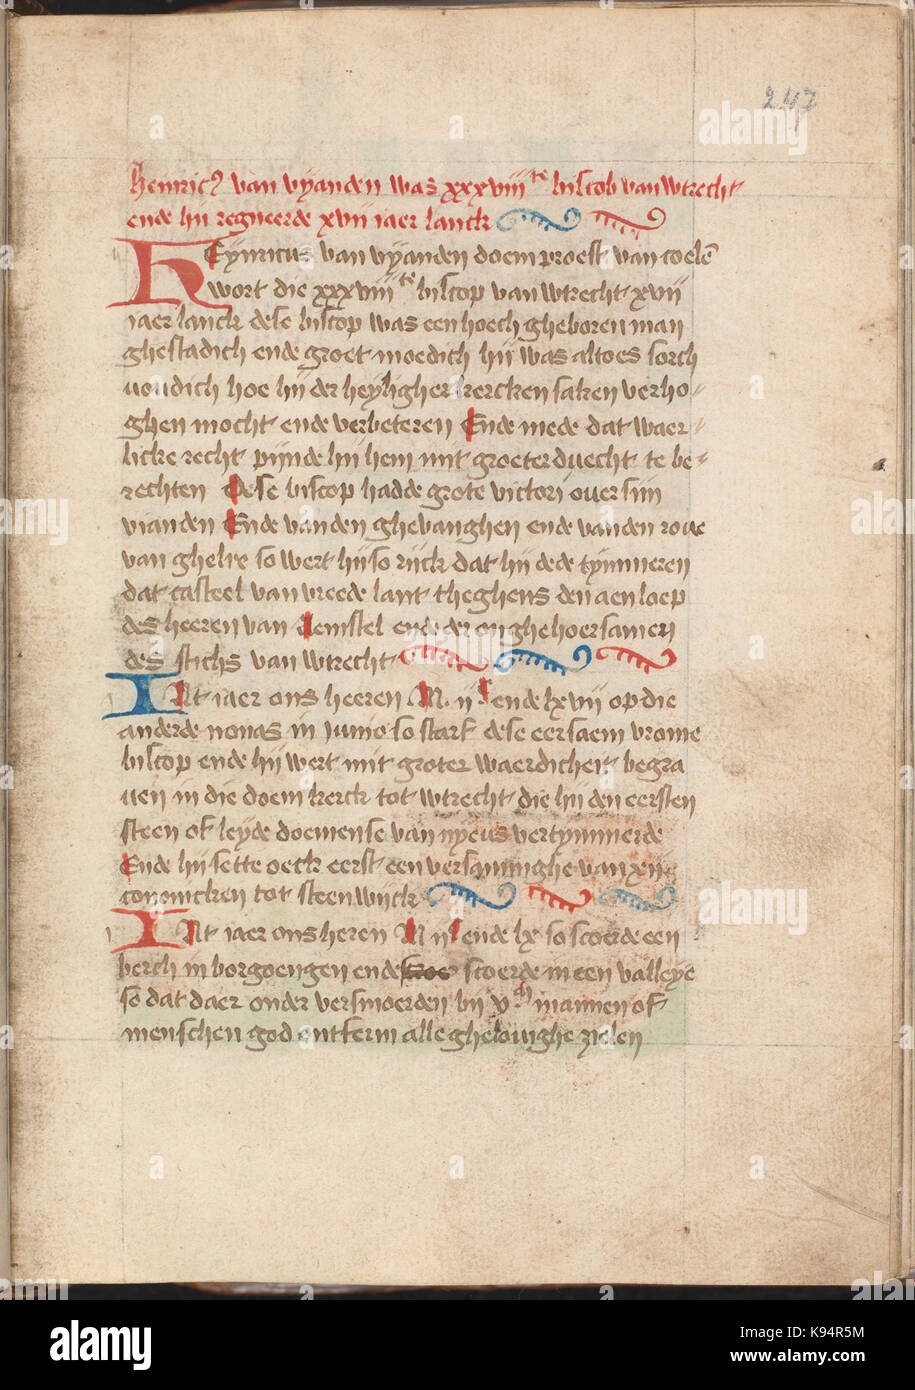 247
henric9 van vyanden was xxxviii te biscob van wtrecht
ende hij regneerde xvii iaer lanck
HEynricus van vyanden doem proest van coelē
wort die xxxviii te biscop van wtrecht xvii
iaer lanck dese biscop was een hoech gheboren man
ghestadich ende groet moedich hij was altoes sorch
voudich hoe hij der heyligher kercken saken verho-
ghen mocht ende verbeteren Ende mede dat waer-
licke recht pijnde hij hem mit groeter duecht te be-
rechten Dese biscop hadde grote victori over sijn
vianden Ende van den ghevanghen ende van den rove
van ghelre so wert hij so rijck dat hij dede tymmeren
dat casteel van vreede lant theghens den aen loep
des heeren van Aemstel ende der onghehoersamen
des stichs van wtrecht
INt iaer ons heeren M. ii c ende lxvii op die
anderde nonas in Junio so starf dese eersaem vrome
biscop ende hij wert mit groter waerdicheit begra
uen in die doem kerck tot wtrecht die hij den eersten
steen of leyde doemense van nyeus vertymmerde
Ende hij sette oeck eerst een versamninghe van xii
cononicken tot steenwijck
INt iaer ons heren M ii c ende lx so scoerde een
berch in borgoengen ende scoerde in een valleye
so dat daer onder versmoerden bij v m mannen of
menschen god ontferm alle ghelouighe zielen
alamy
Image ID: K94R5M
www.alamy.com